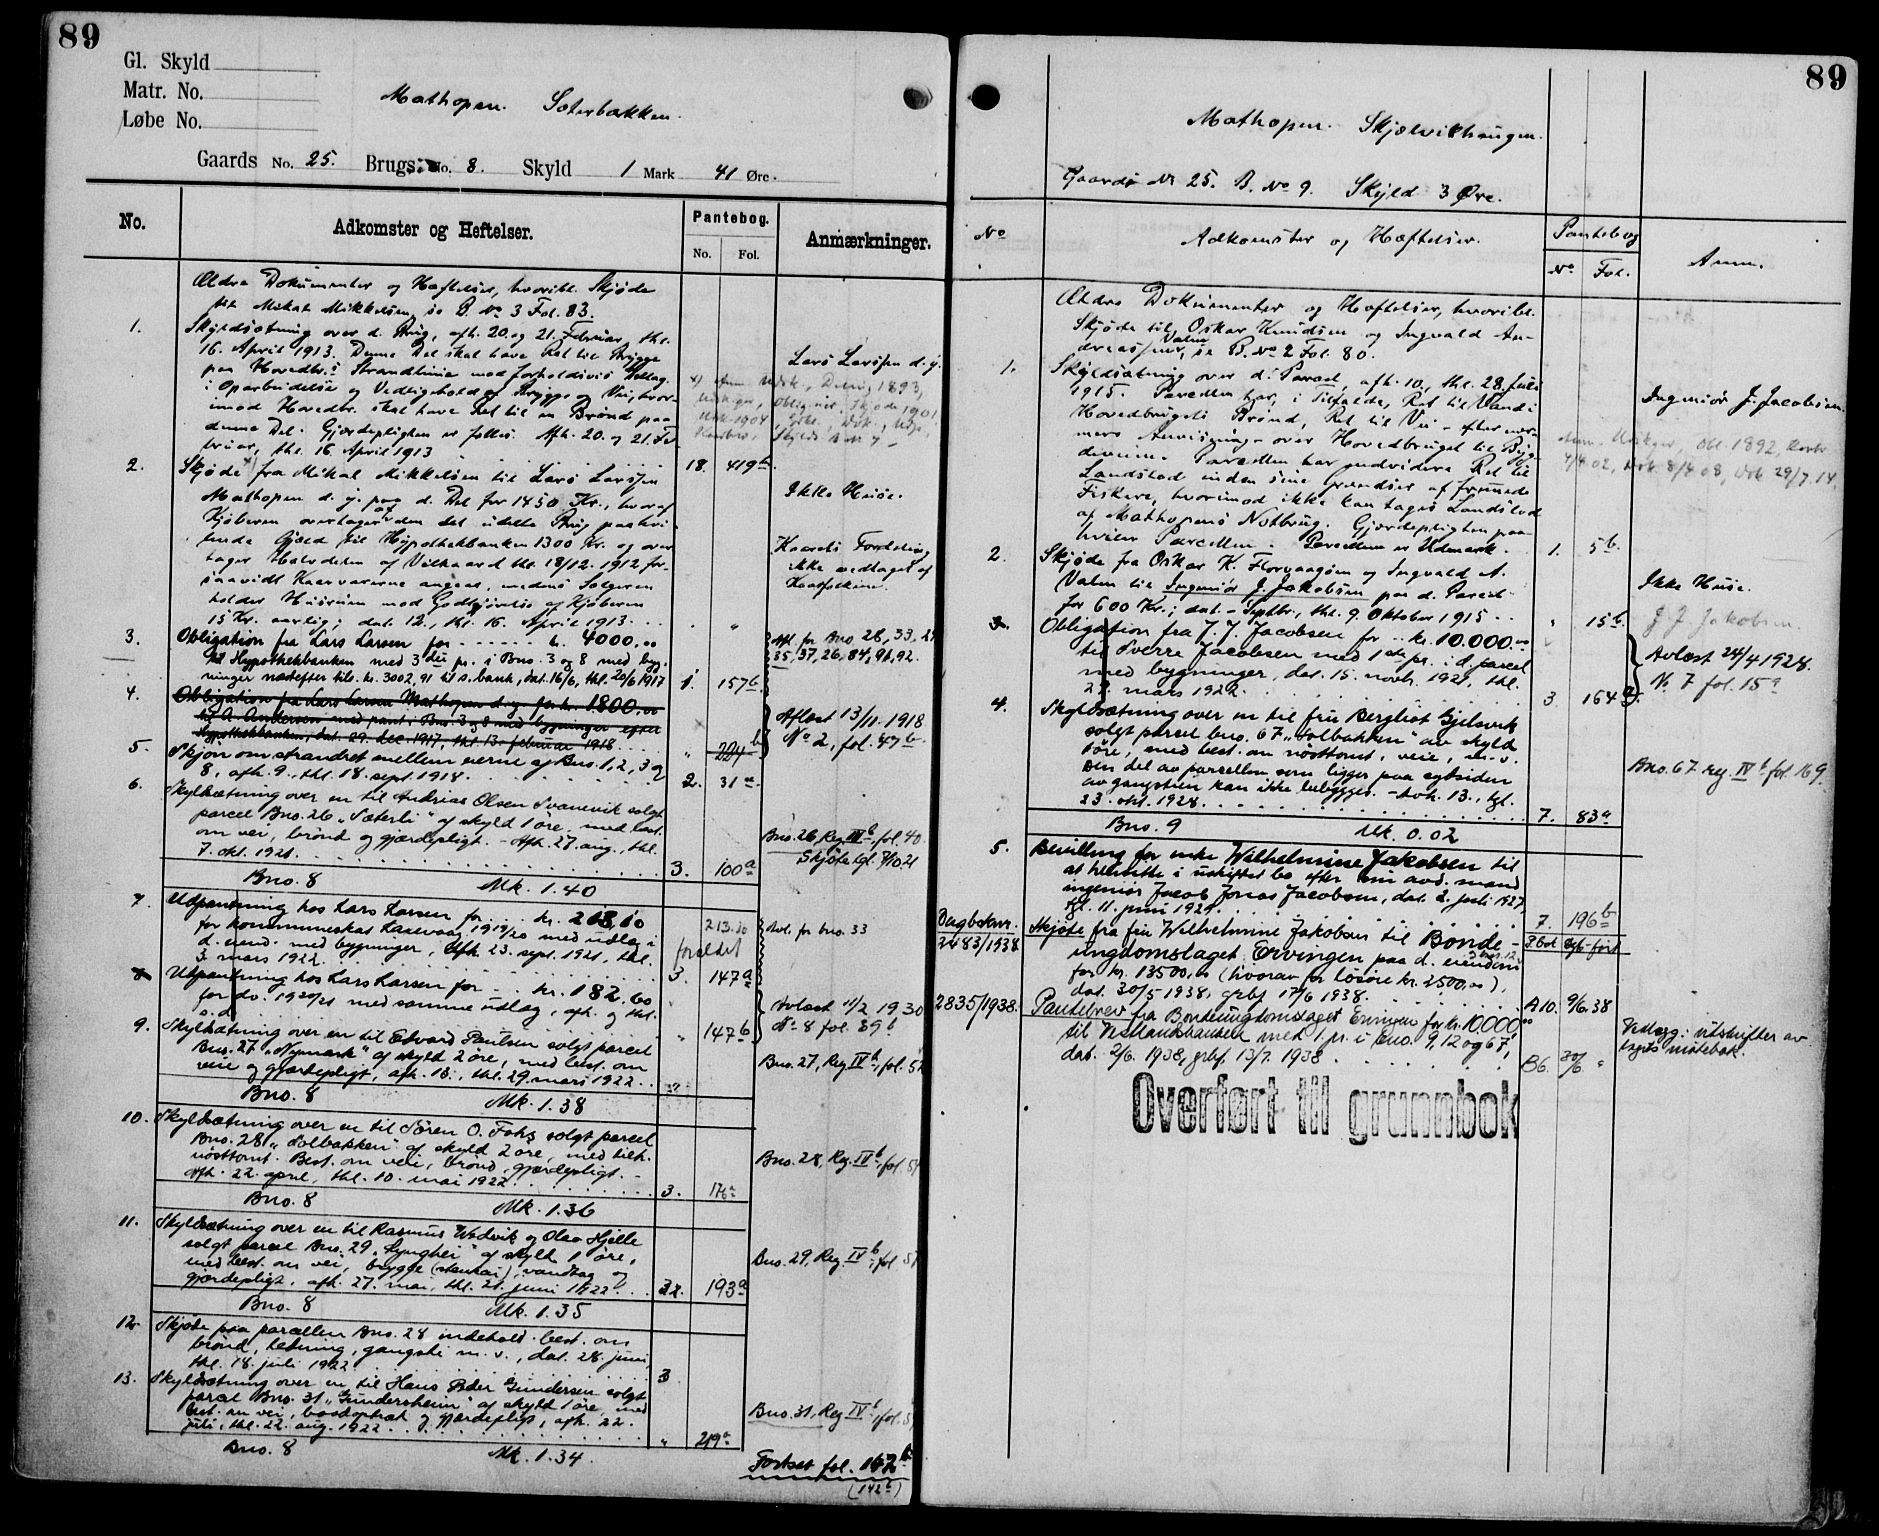 89
Gl. Skyld
Matr. No.
Løbe No.
Mathopen. Sæterbakken.
Gaards No. 25. Brugs No. 8. Skyld 1 Mark 41 Øre.
No.
Adkomster og Heftelser.
Pantebog.
No. Fol.
Anmærkninger.
Ældre Dokumenter og Hæftelser, hvoribl. Skjøde
til Mikal Mikkelsen, se P. No 3 Fol. 83.
1. Skyldsætning over d. Brug, afh. 20. og 21. Februar, thl.
16. April 1913. Denne Del skal have Ret til Brygge
paa Hovedbr.s Strandlinie mod forholdsvis Deltag.
i Oparbeidelse og Vedligehold af Brygge og Vei, hvor-
imod Hovedbr. skal have Ret til en Brønd paa
denne Del. Gjærdepligten er fælles. Afh. 20. og 21. Fe-
bruar, thl. 16. April 1913
Lars Larssen d. y.
2. Skjøde fra Mikal Mikkelsen til Lars Larssen
Mathopen d. y. paa d. Del for 1450 Kr., hvoraf
Kjøberen overtager af den det udelte Brug paahvi-
lende Gjæld til Hypothekbanken 1300 Kr. og over-
tager Halvdelen af Vilkaar d. thl. 18/12. 1912, for-
saavidt Kaarvarerne angaar, medens Sælgeren
holder Husrum mod Godtgjørelse af Kjøberen
15 Kr. aarlig; dat. 12., thl. 16. April 1913.
18. 419 b.
Ikke Huse.
Kaarets Fordeling
ikke vedtaget af
Kaarfolkene.
3. Obligation fra Lars Larsen for kr. 4000,00
til Hypothekbanken med 3die pr. i Bno. 3 og 8 med byg-
ninger næstefter tils. kr. 3002,91 til s. bank, dat. 16/6, thl. 20/6 1917
1. 157 b
Afl. for Bno 28, 33, 29
35, 37, 26, 84, 91, 92.
4. Obligation fra Lars Larsen Mathopen d. y. for kr. 1800,00
til A. Andersen med pant i Bno 3 og 8 med bygninger efter
Hypothekbanken, dat. 29. dec. 1917, thl. 13. februar 1918
" 224 b
Aflæst 13/11. 1918
No 2, fol. 47 b
5. Skjøn om strandret mellem eierne af Bno. 1, 2, 3 og
8, afh. 9., thl. 18. sept. 1918.
2. 31 a
6. Skyldsætning over en til Andreas Olsen Svanevik solgt
parcel Bno. 26 „Sæterli" af skyld 1 øre, med best.
om vei, brønd og gjærdepligt. - Afh. 27. aug., thl.
7. okt. 1921.
3. 100 a
Bno. 26 Reg III b fol. 40
Skjøte tgl. 7/10.21
Bno. 8 Mk. 1.40
7. Utpantning hos Lars Larsen for kr. 213,10
for kommuneskat Laksevaag 1919/20 med utlæg i
d. eiend. med bygninger, afh. 23. sept. 1921, thl.
3. mars 1922.
213.20
foreldet
3. 147 a
Avl. for bno. 33
8 Utpantning hos Lars Larsen for kr. 182,60
for do. 1920/21 med samme utlæg, afh. og thl.
s. d.
" 147 b
Avlæst 11/2 1930
No 8 fol. 89 b
9. Skyldsætning over en til Edvard Paulsen solgt parcel
Bno. 27 „Nymark" af skyld 2 øre, med best. om
veie og gjærdepligt, afh. 18., thl. 29. mars 1922.
Bno. 27, Reg IV b, fol. 5
Bno. 8 Mk. 1.38
10. Skyldsætning over en til Søren O. Fohs solgt parcel
Bno. 28 „Solbakken" af skyld 2 øre, med tilh.
nøsttomt. Best. om veie, brønd, gjærdepligt. -
Afh. 22. april, thl. 10. mai 1922.
3. 176 a
Bno. 28, Reg. IV b, fol. 5
Bno. 8 Mk. 1.36
11. Skyldsætning over en til Rasmus Wedvik og Olav Hjelle
solgt parcel Bno. 29 „Lynghei" af skyld 1 øre,
med best. om vei, brygge (stenkai), vandtag og
gjærdepligt, afh. 27. mai, thl. 21. juni 1922.
193 a
Bno. 29, Reg. IV b, fol. 5
Bno. 8 Mk. 1.35
12. Skjøte paa parcellen Bno. 28 indehold. best. om
brønd, ledning, gangsti m. v., dat. 28. juni,
thl. 18. juli 1922.
3
13. Skyldsætning over en til Hans Peder Gundersen solgt
parcel Bno. 31 „Gundersheim" af skyld 1 øre, med
best. om vei, baadoptræk og gjærdepligt, afh. 22.
juli, thl. 22. aug. 1922.
" 219 a
Bno. 31, Reg IV b, fol. 5
Bno. 8 Mk. 1.34.
Fortset fol. 142 b
(142 b)
89
Mathopen. Skjælvikhaugen.
Gaards No 25. B. No 9. Skyld 3 Øre.
No
Adkomster og Hæftelser.
Pantebog
No Fol.
Anm.
Ældre Dokumenter og Hæftelser, hvoribl.
Skjøde til Oskar Knudsen og Ingvald An-
dreassen Valen, se P. No 2 Fol. 80.
1. Skyldsætning over d. Parcel, afh. 10., thl. 28. Juli
1915. Parcellen har, i Tilfælde, Ret til Vand i
Hovedbrugets Brønd, Ret til Vei - efter nær-
mere Anvisning - over Hovedbruget til Byg-
deveien. Parcellen har endvidere Ret til
Landstød inden sine Grændser af fremmede
Fiskere, hvorimod ikke kan tages Landstød
af Mathopens Notbrug. Gjærdepligten paa-
hviler Parcellen. Parcellen er Udmark.
1. 5 b.
Ingeniør J. Jacobsen.
2. Skjøde fra Oskar K. Florvaagøen og Ingvald A.
Valen til Ingeniør J. Jakobsen paa d. Parcel
for 600 Kr.; dat. - Septbr., thl. 9. Oktober 1915
" 15 b.
Ikke Huse.
J. J. Jakobsen.
3. Obligation fra J. J. Jacobsen for kr. 10.000,00
til Sverre Jacobsen med 1ste pr. i d. parcel
med bygninger, dat. 15. novbr. 1921, thl.
22. mars 1922.
3. 164 a
Avlæst 24/4 1928
No 7 fol. 15 a
4. Skyldsætning over en til fru Bergliot Gjelsvik
solgt parcel bno. 67 „Solbakken" av skyld
1 øre, med best. om nøsttomt, veie, m. v.
Den del av parcellen som ligger paa sydsiden
av gangstien kan ikke bebygges. - Avh. 13., tgl.
23. okt. 1928.
7. 83 a
Bno. 67 reg. IV b fol. 169.
Bno. 9 Mk. 0.02
5. Bevilling for enke Wilhelmine Jakobsen til
at hensitte i uskiftet bo efter sin avd. mand
ingeniør Jacob Jonas Jacobsen, dat. 2. juli 1927,
tgl. 11. juni 1929.
7. 196 b
Dagboknr.
2483/1938. Skjøte fra fru Wilhelmine Jakobsen til Bonde-
ungdomslaget Ervingen paa d. eiendom
for kr. 13500,00 (hvorav for løsøre kr. 2500,00),
dat. 30/5 1938, grbf. 17/6 1938.
A10. 9/6.38
2835/1938. Pantebrev fra Bondeungdomslaget Ervingen for kr. 10.000,00
til Vestlandsbanken med 1. pr. i bno. 9, 12 og 67,
dat. 2/6. 1938, grbf. 13/7. 1938
B6. 30/6 "
Vedlegg: utskrifter av
lagets møtebok.
Overført til grunnbok